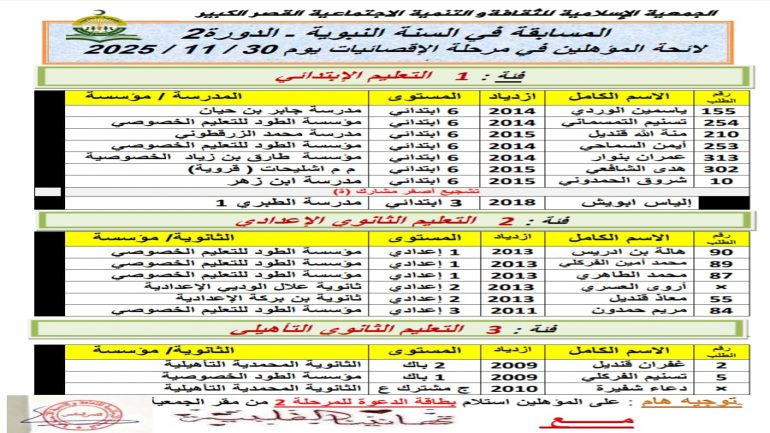 الجمعية الإسلامية للثقافة و التنمية الاجتماعية القصر الكبير
المسابقة في السنة النبوية - الدورة2
لائحة المؤهلين في مرحلة الإقصائيات يوم 30 / 11 / 2025
فئة : 1 التعليم الإبتدائي
رقم الطلب الاسم الكامل ازدياد المستوى المدرسة / مؤسسة
155 ياسمين الوردي 2014 6 ابتدائي مدرسة جابر بن حيان
254 تسنيم التمسماني 2014 6 ابتدائي مؤسسة الطود للتعليم الخصوصي
210 منة الله قنديل 2015 6 ابتدائي مدرسة محمد الزرقطوني
253 أيمن السماحي 2014 6 ابتدائي مؤسسة الطود للتعليم الخصوصي
313 عمران بنوار 2014 6 ابتدائي مؤسسة طارق بن زياد الخصوصية
302 هدى الشافعي 2015 6 ابتدائي م م اشليحات ( قروية)
10 شروق الحمدوني 2015 6 ابتدائي مدرسة ابن زهر
تشجيع أصغر مشارك (ة)
إلياس ابويش 2018 3 ابتدائي مدرسة الطبري 1
فئة : 2 التعليم الثانوي الإعدادي
رقم الطلب الاسم الكامل ازدياد المستوى الثانوية/ مؤسسة
90 هالة بن ادريس 2013 1 إعدادي مؤسسة الطود للتعليم الخصوصي
89 محمد أمين الفركلي 2013 1 إعدادي مؤسسة الطود للتعليم الخصوصي
87 محمد الطاهري 2013 1 إعدادي مؤسسة الطود للتعليم الخصوصي
× أروى العسري 2013 2 إعدادي ثانوية علال الوديي الإعدادية
55 معاذ قنديل 2013 2 إعدادي ثانوية بن بركة الإعدادية
84 مريم حمدون 2011 3 إعدادي مؤسسة الطود للتعليم الخصوصي
فئة : 3 التعليم الثانوي التأهيلي
رقم الطلب الاسم الكامل ازدياد المستوى الثانوية/ مؤسسة
2 غفران قنديل 2009 2 باك الثانوية المحمدية التأهيلية
5 تسنيم الفركلي 2009 1 باك مؤسسة الطود الخصوصية
× دعاء شقيرة 2010 ج مشترك ع الثانوية المحمدية التأهيلية
توجيه هام : على المؤهلين استلام بطاقة الدعوة للمرحلة 2 من مقر الجمعية
مــــع